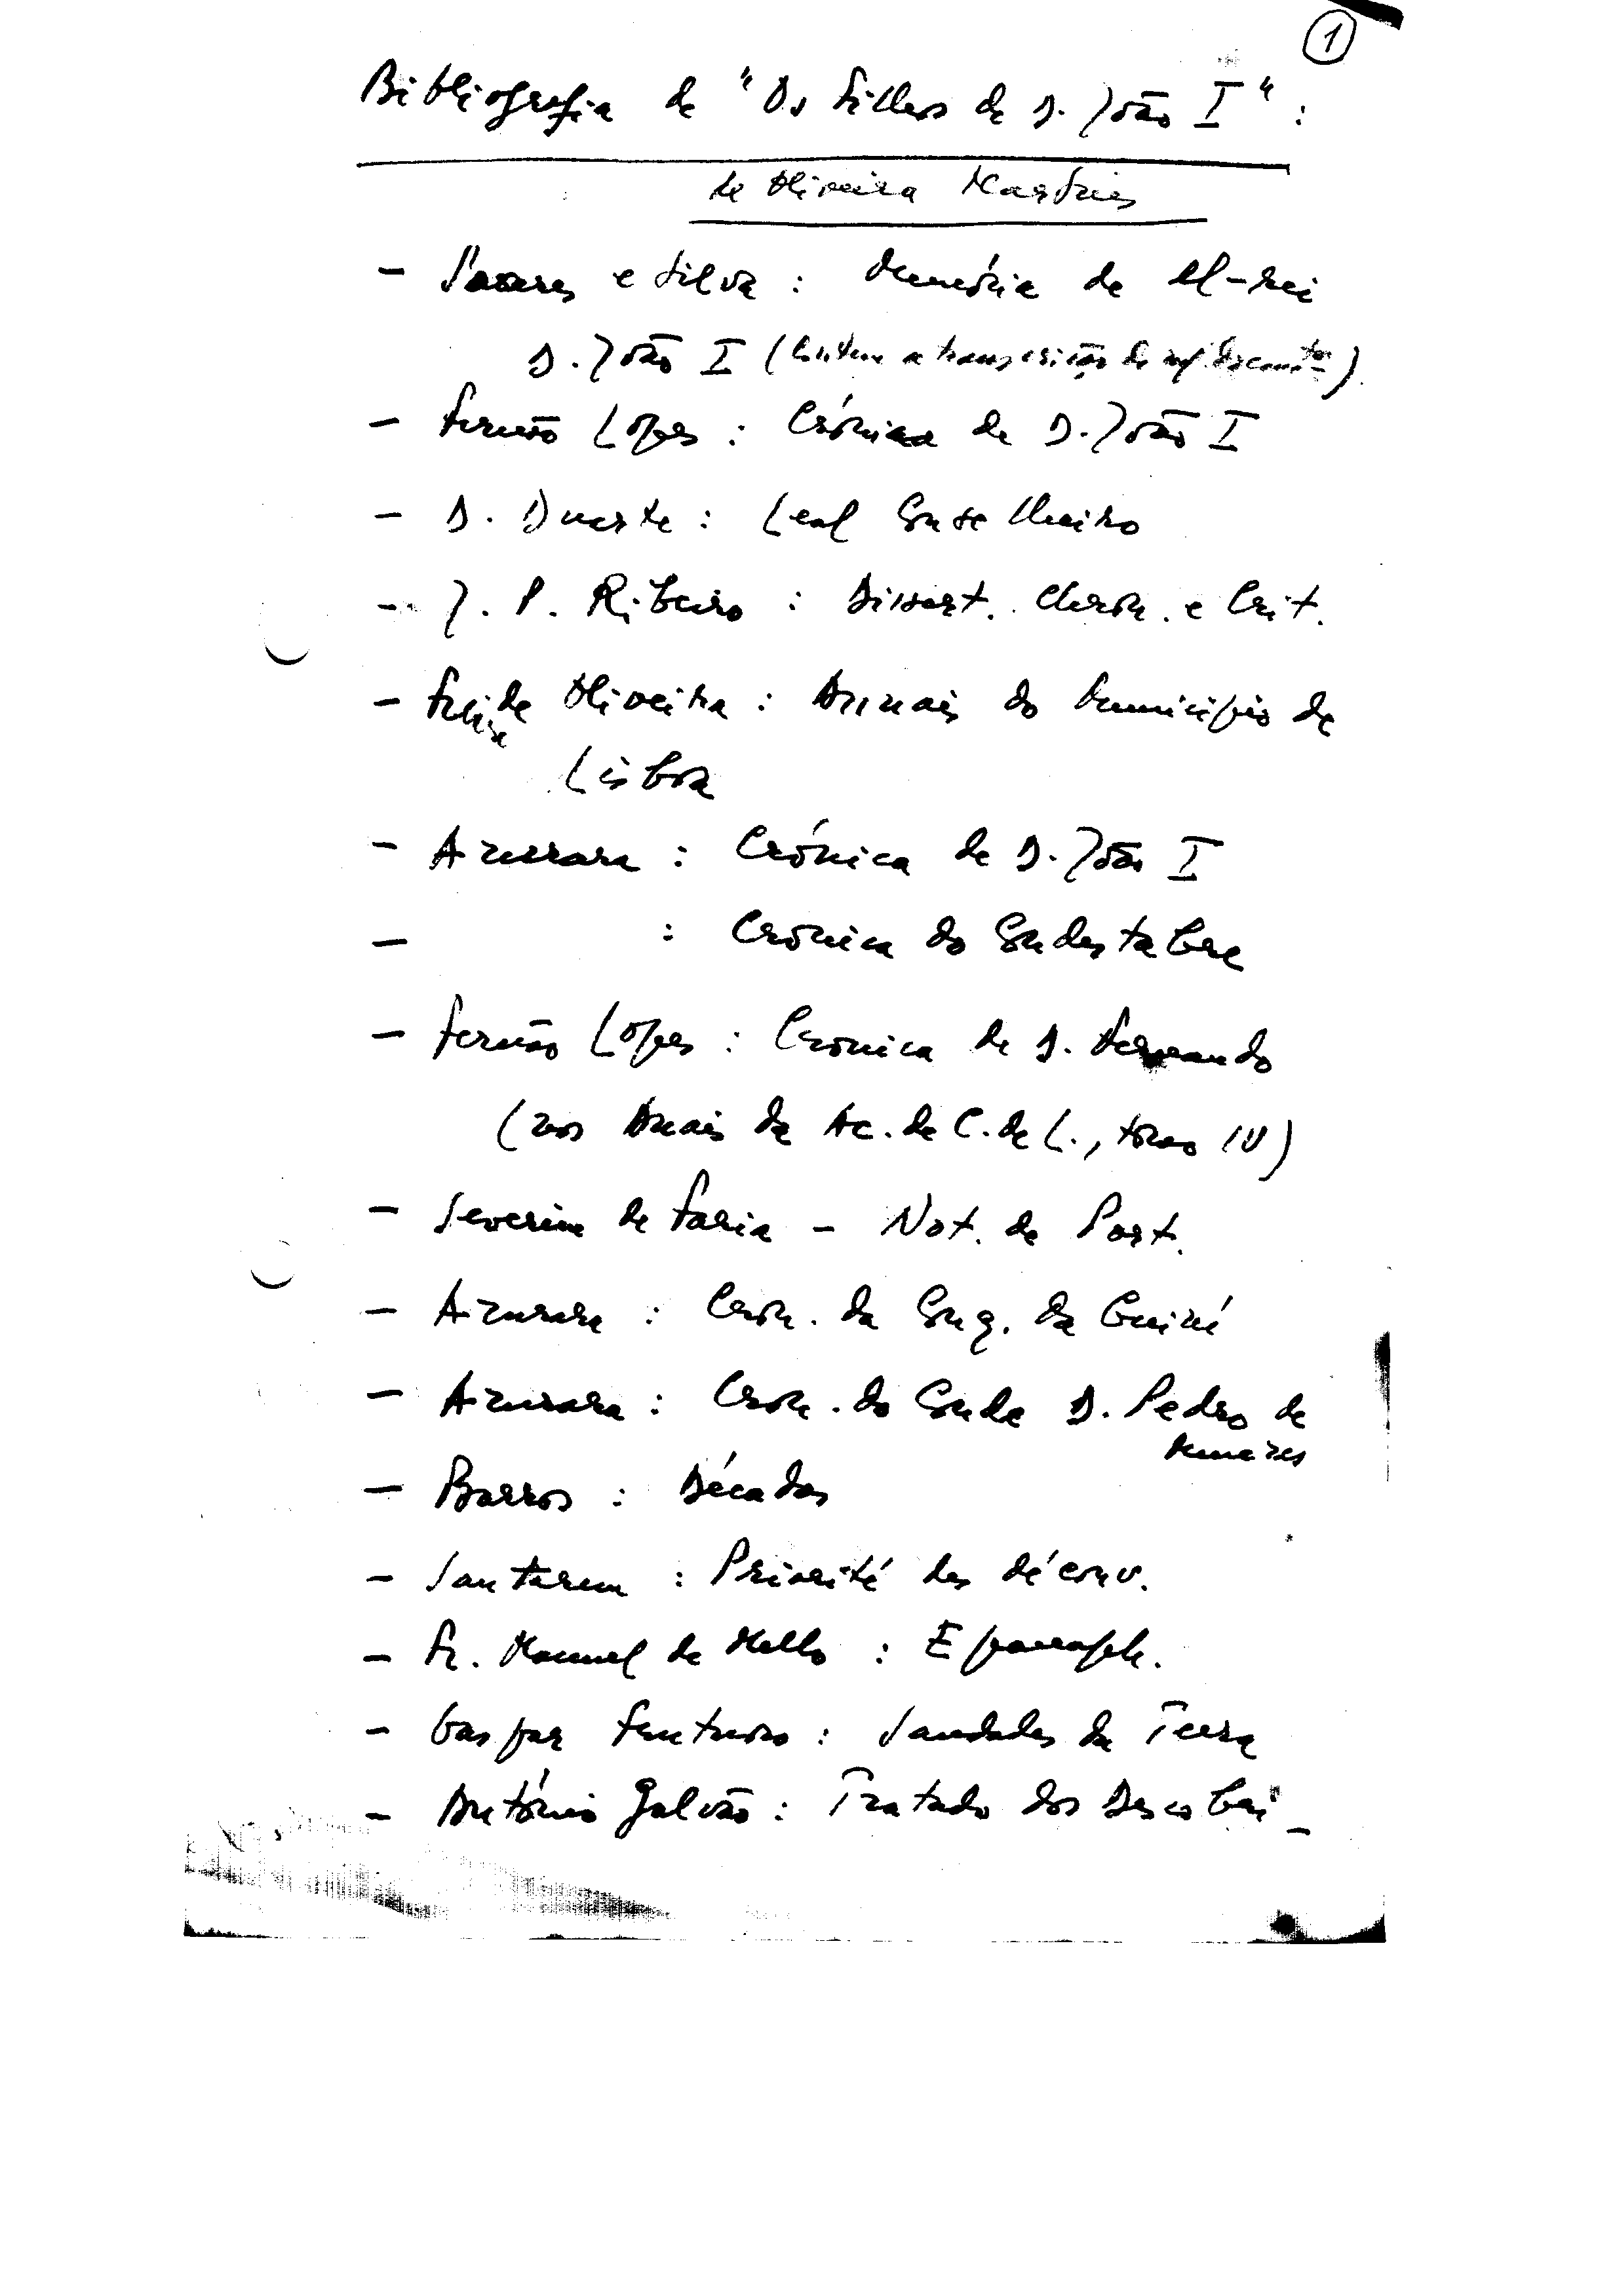 1
Bibliografia de "Os Filhos de D. João I" :
de Oliveira Martins
- Soares e Silva : Memória de El-rei
D. João I (Contem a transcrição de documtos).
- Fernão Lopes : Crónica de D. João I
- D. Duarte : Leal Conselheiro
- J. P. Ribeiro : Dissert. Chron. e Crit.
- Freire de Oliveira : Annais do Município de
Lisboa
- Azurara : Crónica de D. João I
- : Crónica do Condestabre
- Fernão Lopes : Crónica de D. Fernando
(nos Anais da Ac. de C. de L., tomo IV)
- Severim de Faria - Not. de Port.
- Azurara : Cron. da Conq. da Guiné
- Azurara : Cron. do Conde D. Pedro de
Menezes
- Barros : Décadas
- Santarem : Priorité des découv.
- Fr. Manuel de Mello : Epanaph.
- Gaspar Frutuoso : Saudades da Terra
- António Galvão : Tratado dos Descobri-